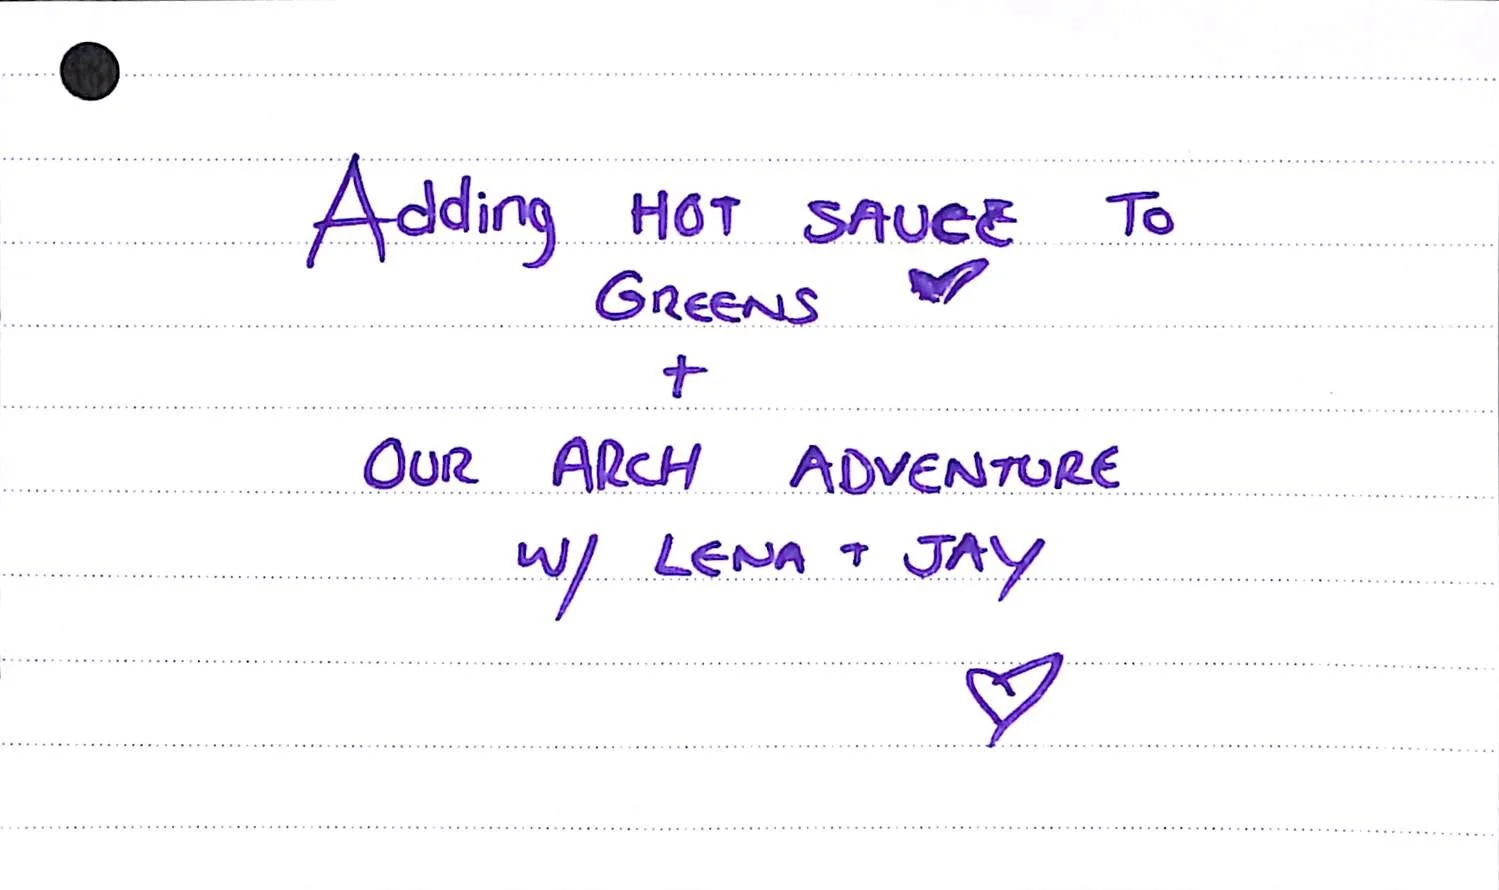 Adding HOT SAUCE TO
GREENS
+
OUR ARCH ADVENTURE
W/ LENA + JAY